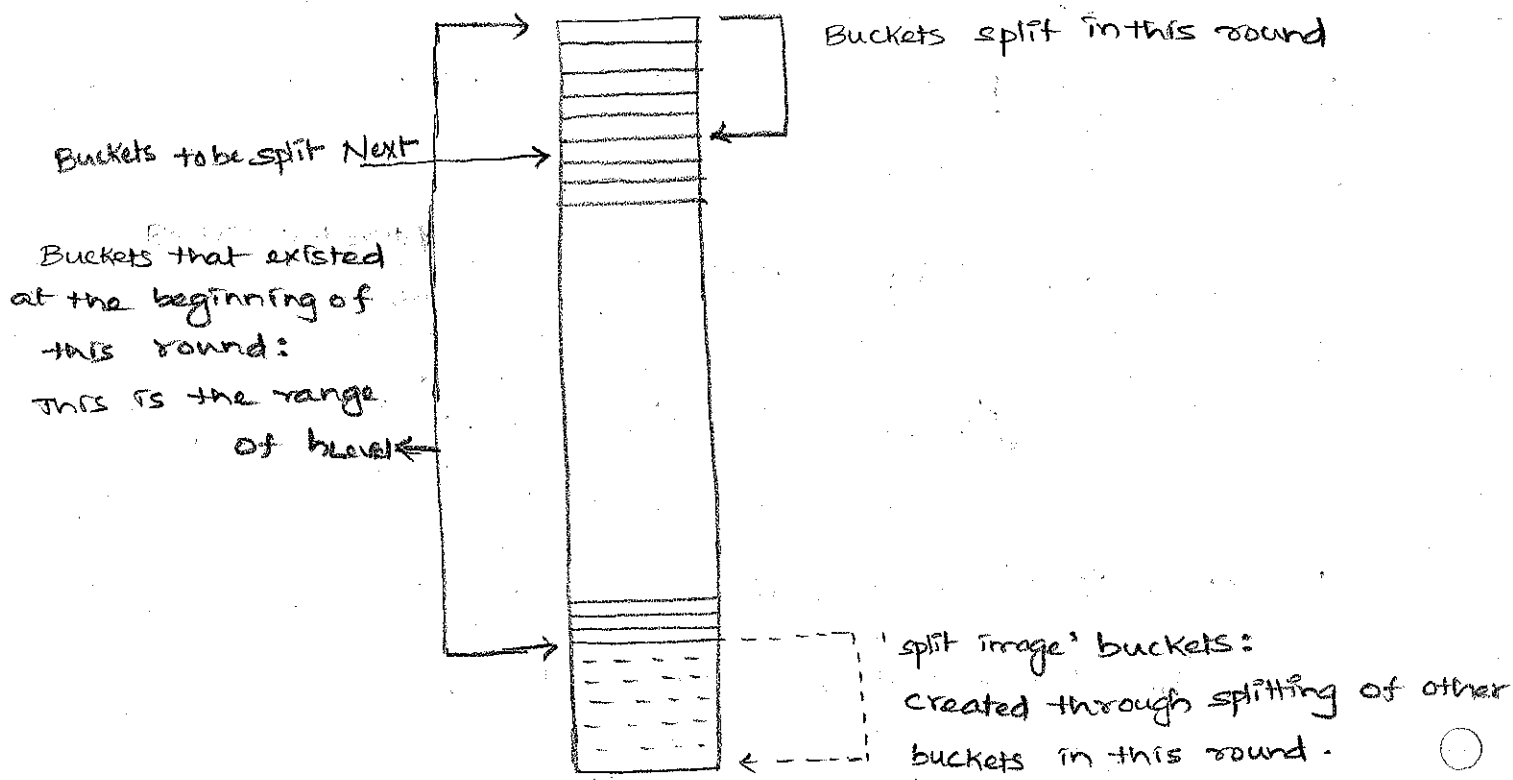 Buckets split in this round
Buckets to be split Next
Buckets that existed
at the beginning of
this round:
This is the range
of hLevel
'split image' buckets:
created through splitting of other
buckets in this round.